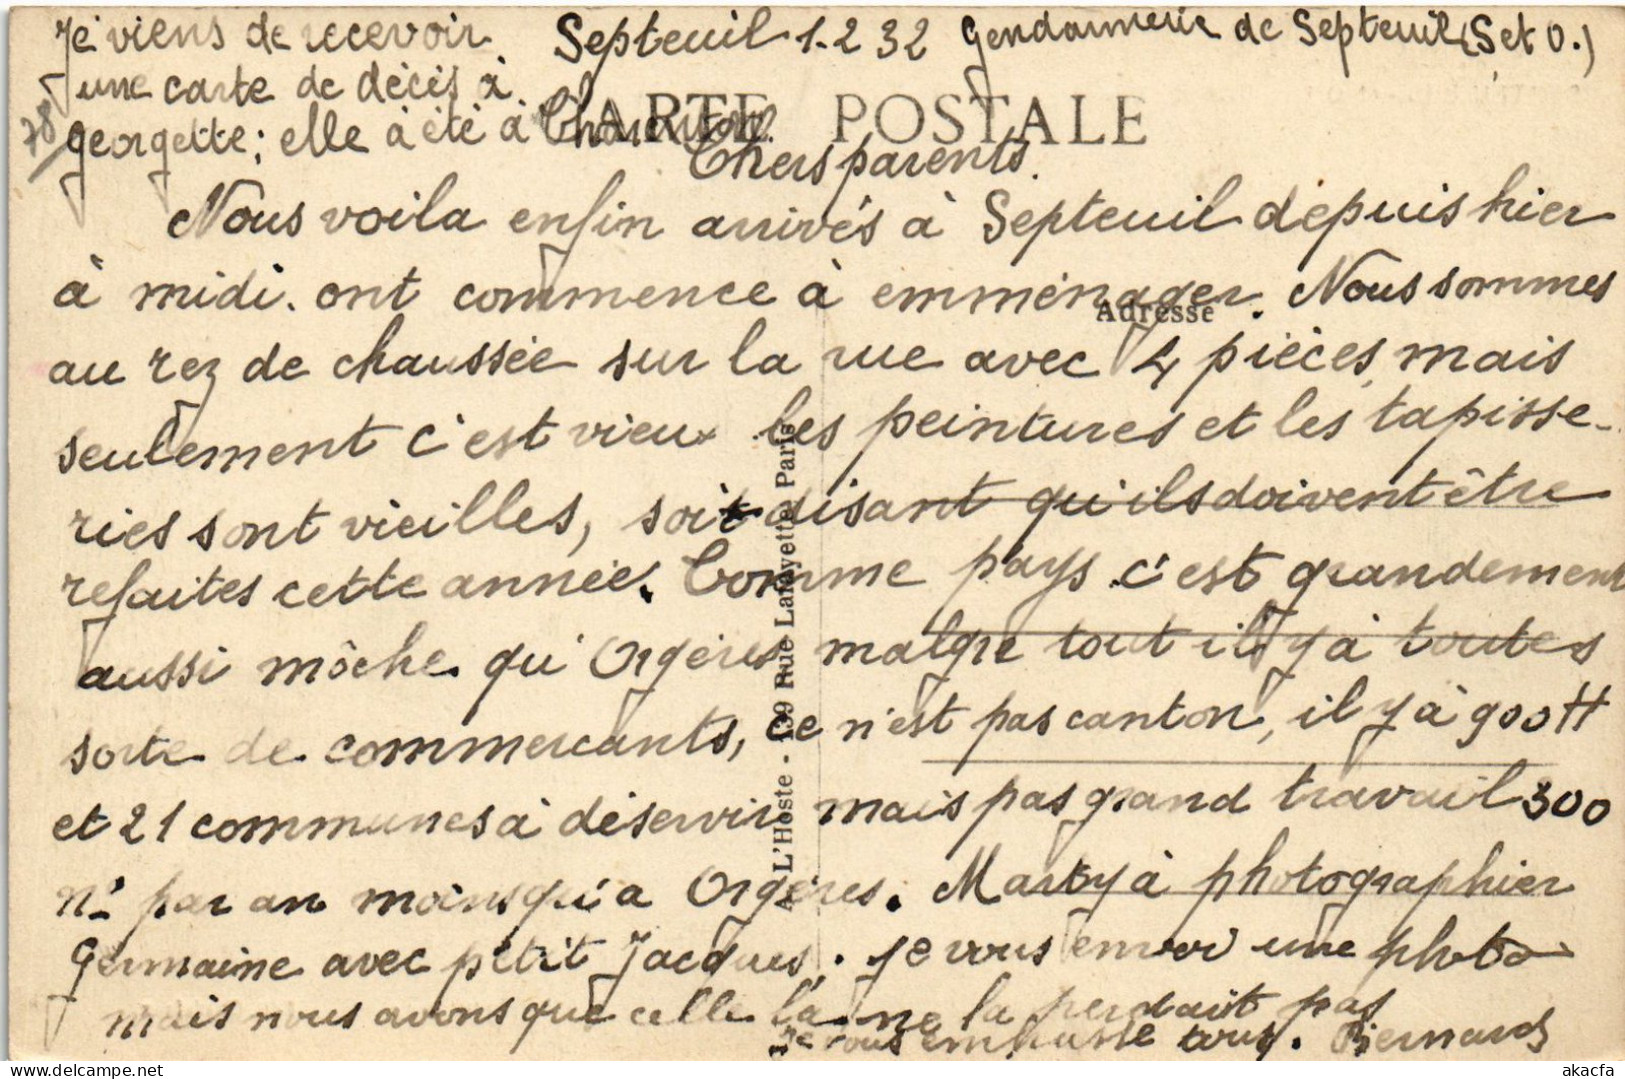 Septeuil 1-2 32 Gendarmerie de Septeuil (S et O.)
Je viens de recevoir
une carte de décès à
Georgette; elle à été à
78
CARTE POSTALE
Chers parents.
Nous voila enfin arrivés à Septeuil depuis hier
à midi. ont commence à emménager. Nous sommes
Adresse
au rez de chaussée sur la rue avec 4 pièces, mais
seulement c'est vieux les peintures et les tapisse-
ries sont vieilles, soit disant qu'ils doivent être
refaites cette année. Comme pays c'est grandement
aussi môche qu'Orgères malgre tout il y à toutes
sorte de commercants, ce n'est pas canton, il y à 900 H
et 21 communes à déservir mais pas grand travail 300
n° par an moins qu'a Orgères. Marty à photographier
Germaine avec petit Jacques. Je vous envoi une photo
mais nous avons que celle là ne la perdait pas
Je vous embrasse tous. Bernard
L'Hoste - 139 Rue Lafayette Paris
akacfa